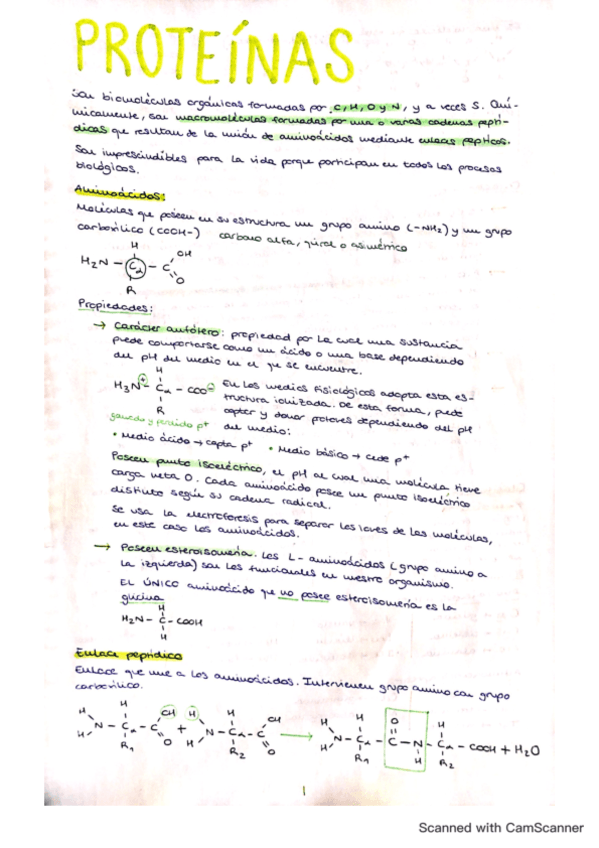 PROTEÍNAS
Son biomoléculas orgánicas formadas por C, H, O y N, y a veces S. Quí-
micamente, son macromoléculas formadas por una o varias cadenas peptí-
dicas que resultan de la unión de aminoácidos mediante enlaces peptícos.
Son imprescindibles para la vida porque participan en todos los procesos
biológicos.
Aminoácidos:
Moléculas que poseen en su estructura un grupo amino (-NH2) y un grupo
carboxílico (COOH-) carbono alfa, quiral o asimétrico
H
H2N - Cα - C OH
O
R
Propiedades:
→ Carácter anfótero: propiedad por la cual una sustancia
puede comportarse como un ácido o una base dependiendo
del pH del medio en el que se encuentre.
H
H3N+ - Cα - COO-
R
En los medios fisiológicos adopta esta es-
tructura ionizada. De esta forma, puede
captar y donar protones dependiendo del pH
del medio:
ganado y perdido p+
• Medio ácido → capta p+ • Medio básico → cede p+
Poseen punto isoeléctrico, el pH al cual una molécula tiene
carga neta 0. Cada aminoácido posee un punto isoeléctrico
distinto según su cadena radical.
Se usa la electroforesis para separar los iones de las moléculas,
en este caso los aminoácidos.
→ Poseen esteroisomería. Los L-aminoácidos (grupo amino a
la izquierda) son los funcionales en nuestro organismo.
EL ÚNICO aminoácido que no posee esteroisomería es la
glicina
H
H2N - C - COOH
H
Enlace peptídico
Enlace que une a los aminoácidos. Intervienen grupo amino con grupo
carboxílico.
H H OH H H OH H H O H
N - Cα - C + N - Cα - C → N - Cα - C - N - Cα - COOH + H2O
H R1 O H R2 O H R1 H R2
1
Scanned with CamScanner